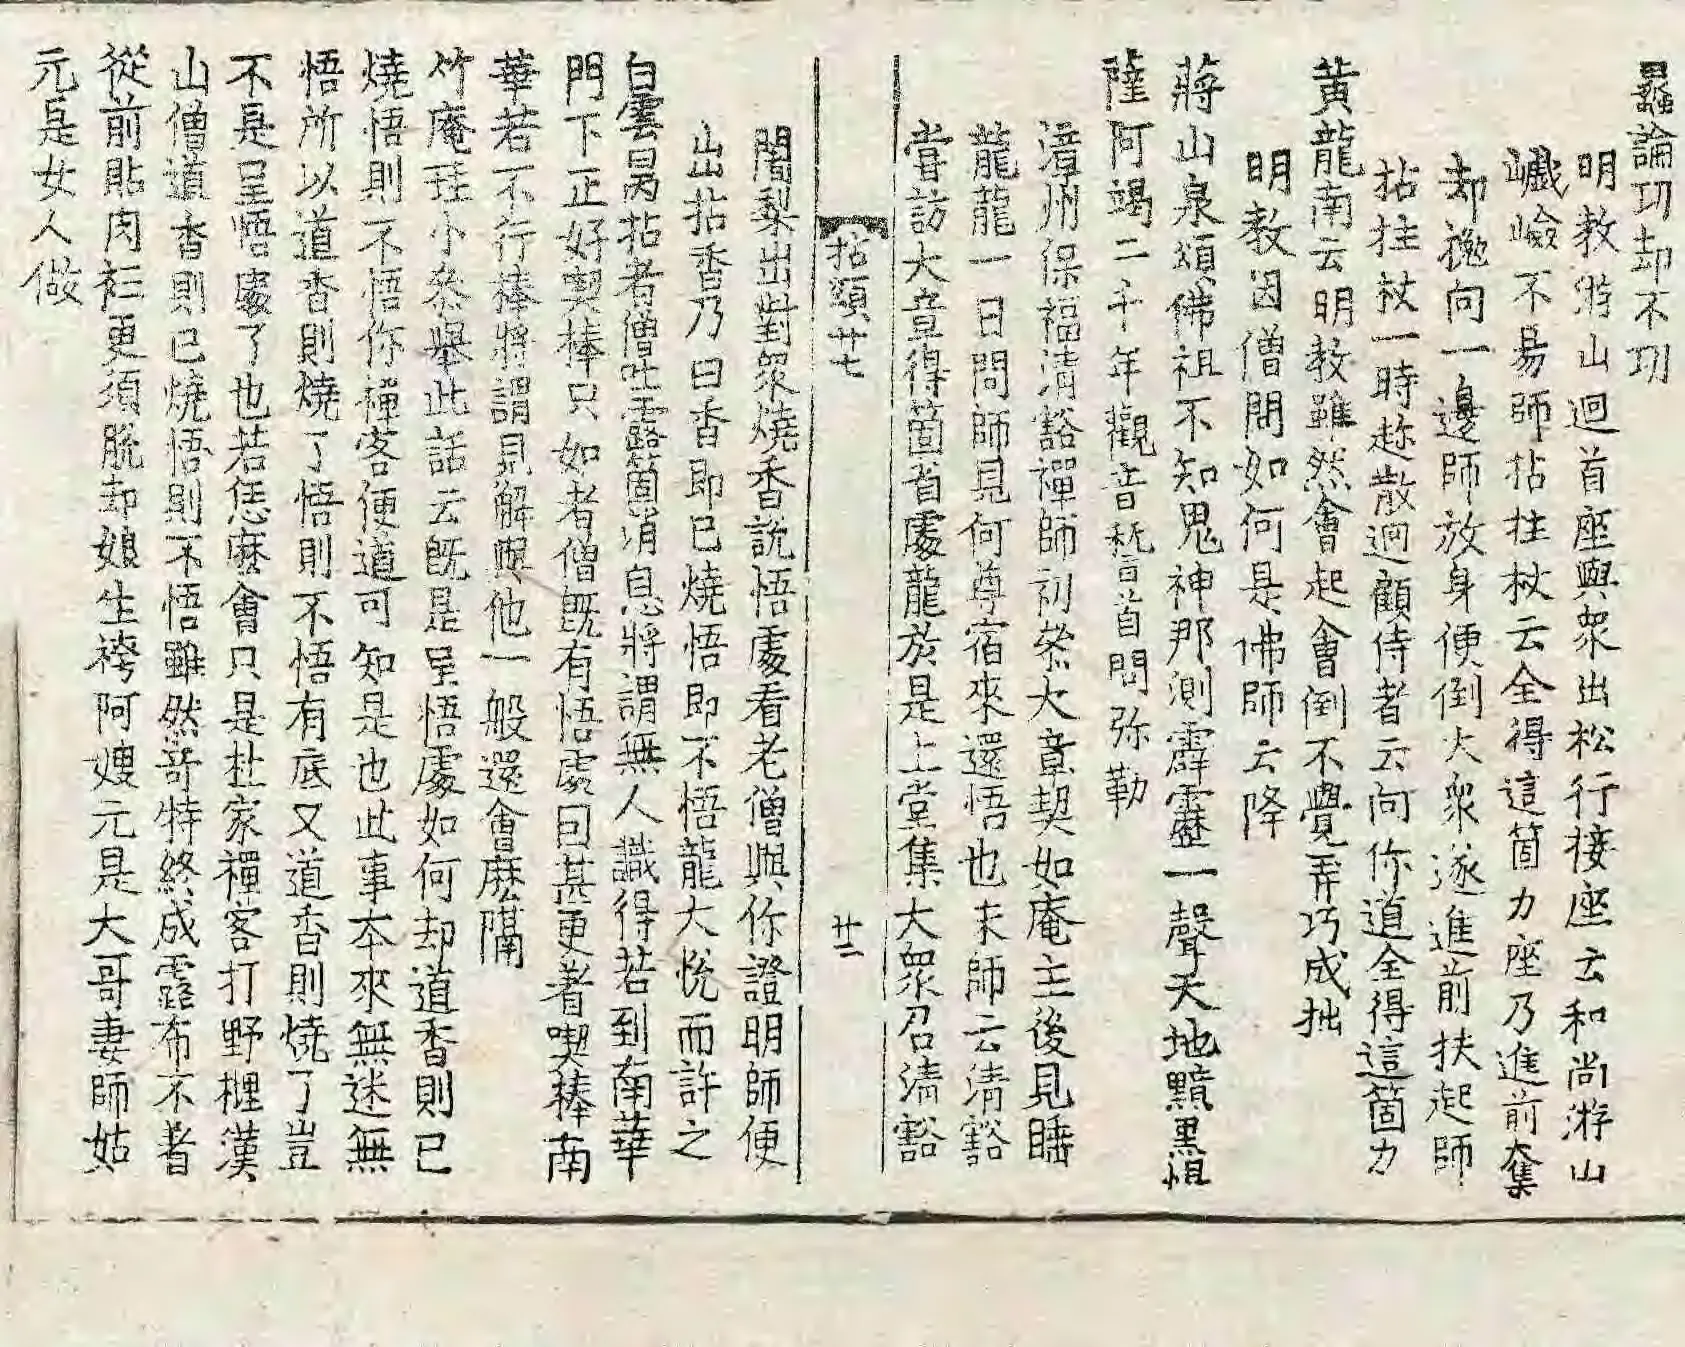 蝨論功却不功
明教遊山迴首座與衆出松行接座云和尚游山
巇嶮不易師拈拄杖云全得這箇力座乃進前奪
却抛向一邊師放身便倒大衆遂進前扶起師
拈拄杖一時趂散迴顧侍者云向你道全得這箇力
黄龍南云明教雖然會起會倒不覺弄巧成拙
明教因僧問如何是佛師云降
蔣山泉頌佛祖不知鬼神那測霹靂一聲天地黯黒惧
薩阿竭二千年觀音稽首問弥勒
漳州保福清豁禪師初叅大章契如庵主後見睡
龍龍一日問師見何尊宿來還悟也未師云清豁
嘗訪大章得箇省處龍於是上堂集大衆召清豁
拈頌廿七
廿二
闍梨出對衆燒香説悟處看老僧與你證明師便
出拈香乃曰香即已燒悟即不悟龍大悅而許之
白雲昺拈者僧吐露箇消息將謂無人識得若到南華
門下正好喫棒只如者僧旣有悟處因甚更著喫棒南
華若不行棒將謂見解與他一般還會麽隔
竹庵珪小叅舉此話云旣是呈悟處如何却道香則已
燒悟則不悟你禪客便道可知是也此事本來無迷無
悟所以道香則燒了悟則不悟有底又道香則燒了豈
不是呈悟處了也若恁麽會只是杜家禪客打野榸漢
山僧道香則已燒悟則不悟雖然奇特終成露布不著
從前貼肉衫更須脫却娘生袴阿嫂元是大哥妻師姑
元是女人做